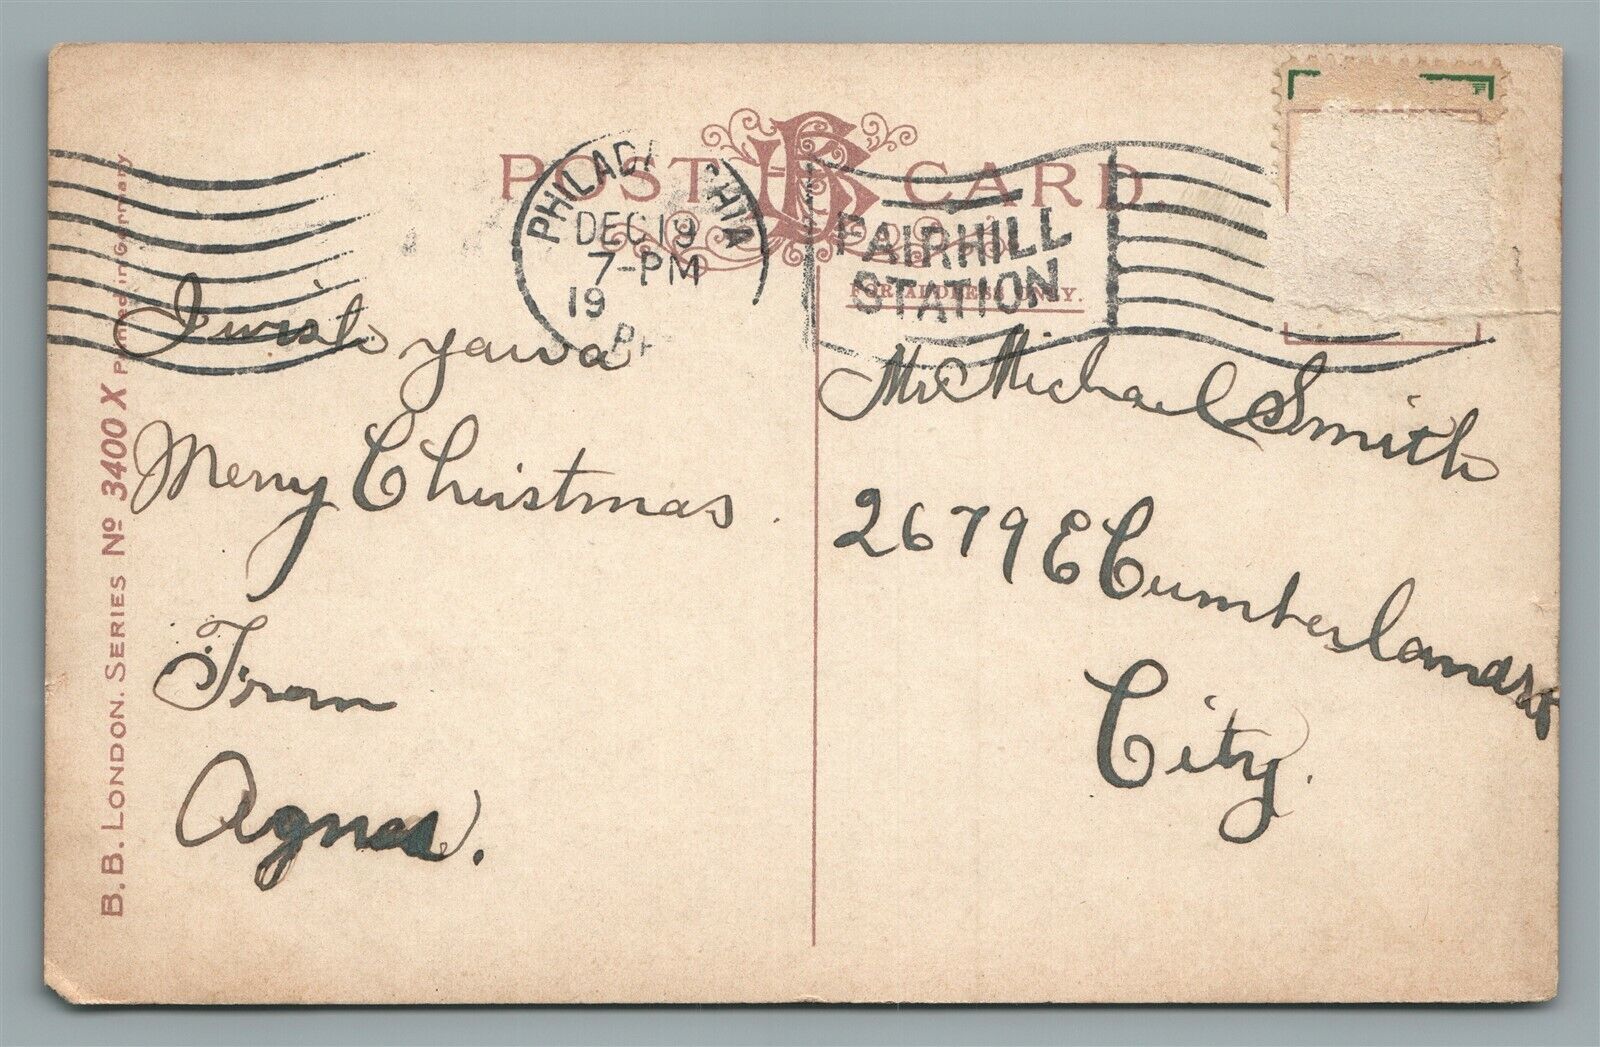 POST CARD.
PHILADE PHIA
DEC 19
7-PM
19
PA
FAIRHILL
STATION
FOR ADDRESS ONLY.
I wish you a
Merry Christmas.
From
Agnes.
Mr. Michael Smith
2679 E Cumberland St
City.
B. B. LONDON. SERIES Nº 3400 X Printed in Germany